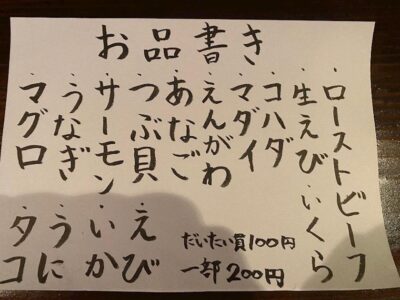 お品書き
・ローストビーフ
・生えび・いくら
・コハダ
・マダイ
・えんがわ
・あなご
・つぶ貝
・サーモン
・うなぎ
・マグロ
えび
いか
うに
タコ
だいたい員100円
一部200円